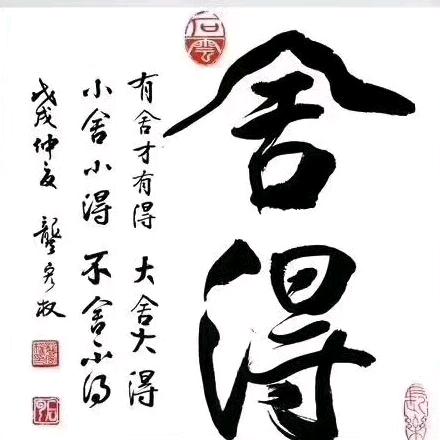 石雲
舍得
有舍才有得 大舍大得
小舍小得 不舍不得
戊戌仲夏 龔